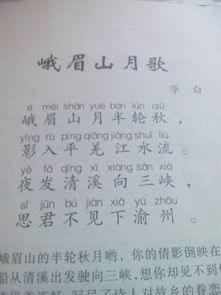 峨眉山月歌
李白
é méi shān yuè bàn lún qiū
峨眉山月半轮秋，
yǐng rù píng qiāng jiāng shuǐ liú
影入平羌江水流。
yè fā qīng xī xiàng sān xiá
夜发清溪向三峡，
sī jūn bú jiàn xià yú zhōu
思君不见下渝州。
峨眉山的半轮秋月哟，你的倩影倒映在
船从清溪出发驶向三峡，想你却见不到